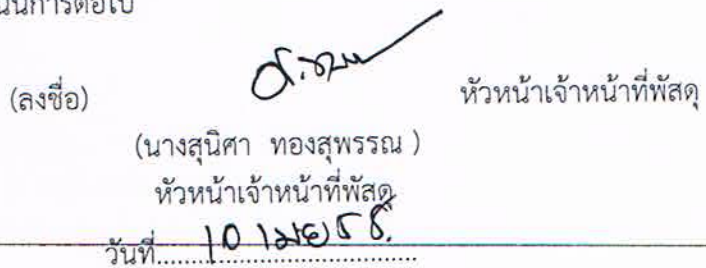 (ลงชื่อ) หัวหน้าเจ้าหน้าที่พัสดุ
(นางสุนิศา ทองสุพรรณ )
หัวหน้าเจ้าหน้าที่พัสดุ
วันที่ 10 เมย